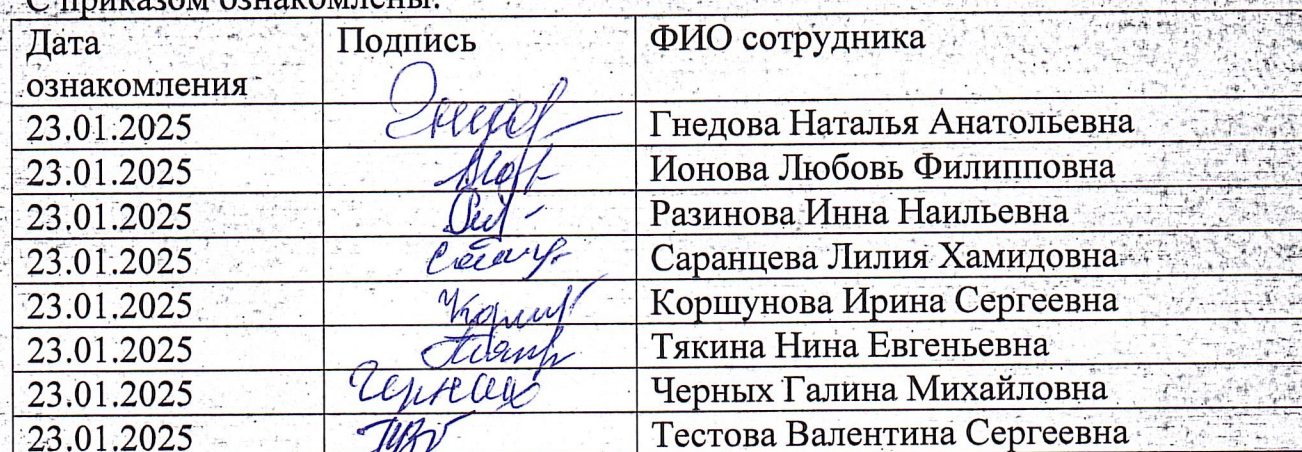 С приказом ознакомлены:
Дата ознакомления Подпись ФИО сотрудника
23.01.2025 Гнедова Наталья Анатольевна
23.01.2025 Ионова Любовь Филипповна
23.01.2025 Разинова Инна Наильевна
23.01.2025 Саранцева Лилия Хамидовна
23.01.2025 Коршунова Ирина Сергеевна
23.01.2025 Тякина Нина Евгеньевна
23.01.2025 Черных Галина Михайловна
23.01.2025 Тестова Валентина Сергеевна